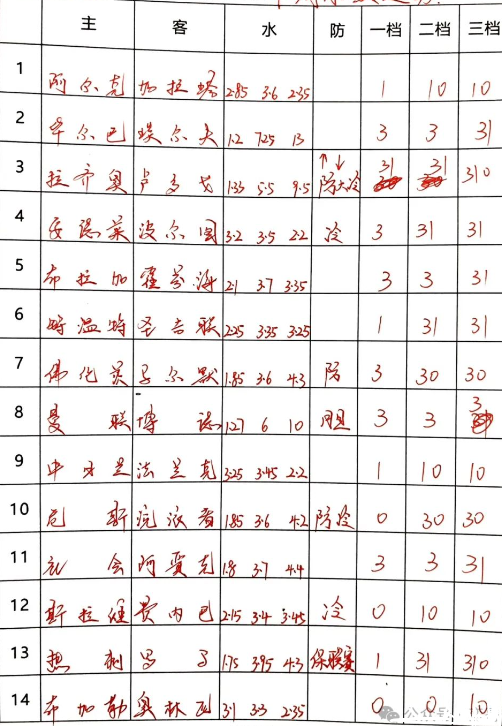 主 客 水 防 一档 二档 三档
1 阿尔克 加拉塔 2·85 3·6 2·35 1 10 10
2 毕尔巴 埃尔夫 1·2 7·25 13 3 3 31
↑ ↓
3 拉齐奥 卢多戈 1·33 5·5 9·5 防大冷 31 31 310
4 安德莱 波尔图 3·2 3·5 2·2 冷 3 31 31
5 布拉加 霍芬海 2·1 3·7 3·35 3 3 31
6 特温特 圣吉联 2·25 3·35 3·25 1 31 31
7 佛伦茨 马尔默 1·85 3·6 4·3 防 3 30 30
8 曼联 博德 1·27 6 10 胆 3 3 3
9 中日兰 法兰克 3·25 3·45 2·2 1 10 10
10 尼斯 流浪者 1·85 3·6 4·2 防冷 0 30 30
11 社会 阿贾克 1·8 3·7 4·4 3 3 31
12 斯拉维 费内巴 2·15 3·4 3·45 冷 0 10 10
13 热刺 罗马 1·75 3·95 4·3 保联赛 1 31 310
14 布加勒 奥林匹 3·1 3·3 2·35 0 0 10
公众号